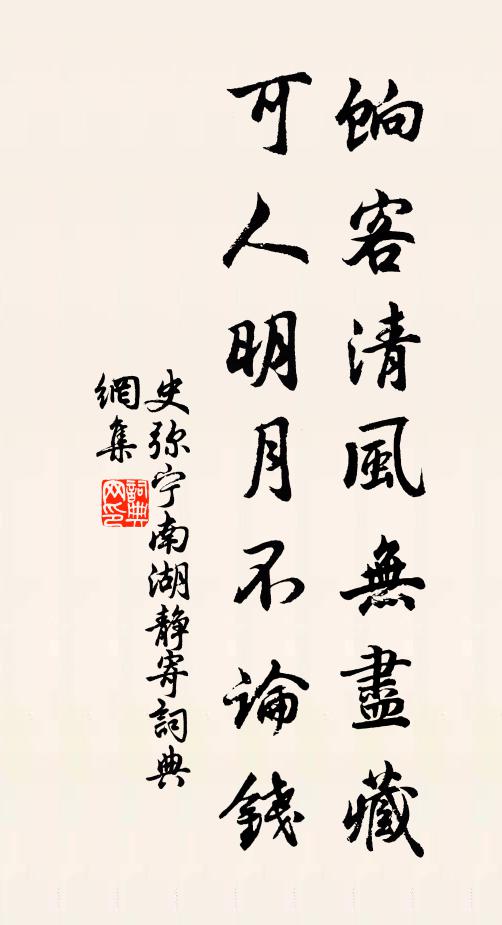 餉客清風無盡藏
可人明月不論錢
史弥宁南湖静寄詞典
網集
詞典
网印